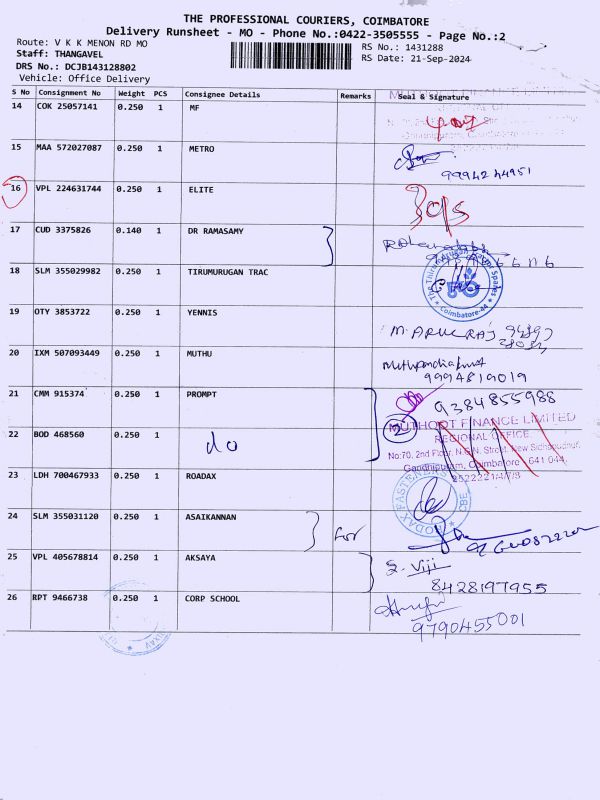 THE PROFESSIONAL COURIERS, COIMBATORE
Delivery Runsheet - MO - Phone No.:0422-3505555 - Page No.:2
Route: V K K MENON RD MO
Staff: THANGAVEL
DRS No.: DCJB143128802
Vehicle: Office Delivery
RS No.: 1431288
RS Date: 21-Sep-2024
S No Consignment No Weight PCS Consignee Details Remarks Seal & Signature
14 COK 25057141 0.250 1 MF
15 MAA 572027087 0.250 1 METRO
9994244951
16 VPL 224631744 0.250 1 ELITE
17 CUD 3375826 0.140 1 DR RAMASAMY
18 SLM 355029982 0.250 1 TIRUMURUGAN TRAC
Coimbatore-44
19 OTY 3853722 0.250 1 YENNIS
M. ARULRAJ
20 IXM 507093449 0.250 1 MUTHU
9994819019
21 CMM 915374 0.250 1 PROMPT
9384855988
2
MUTHOOT FINANCE LIMITED
REGIONAL OFFICE
22 BOD 468560 0.250 1 do
No:70, 2nd Floor, N.G.N. Street, New Sidhapudur,
Gandhipuram, Coimbatore - 641 044.
2522221/4/7/8
23 LDH 700467933 0.250 1 ROADAX
TODAY FASTENERS
CBE
24 SLM 355031120 0.250 1 ASAIKANNAN
for
25 VPL 405678814 0.250 1 AKSAYA
S. Viji
8428197955
26 RPT 9466738 0.250 1 CORP SCHOOL
9790455001